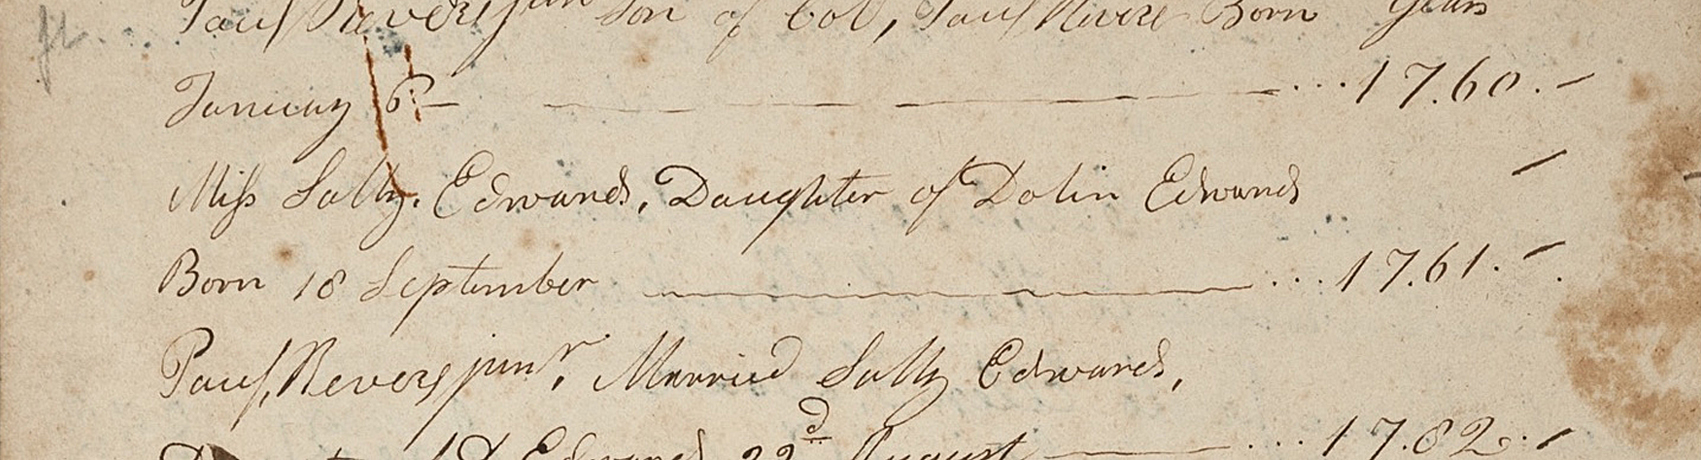 Paul Revere jun son of Col, Paul Revere Born Years
January 6 — ... 17.60. –
Miss Sally. Edwards, Daughter of Dolin Edwards
Born 18 September ... 17.61. –
Paul, Revere junr, Married Sally Edwards,
Edwards 22d August ... 17.82. –